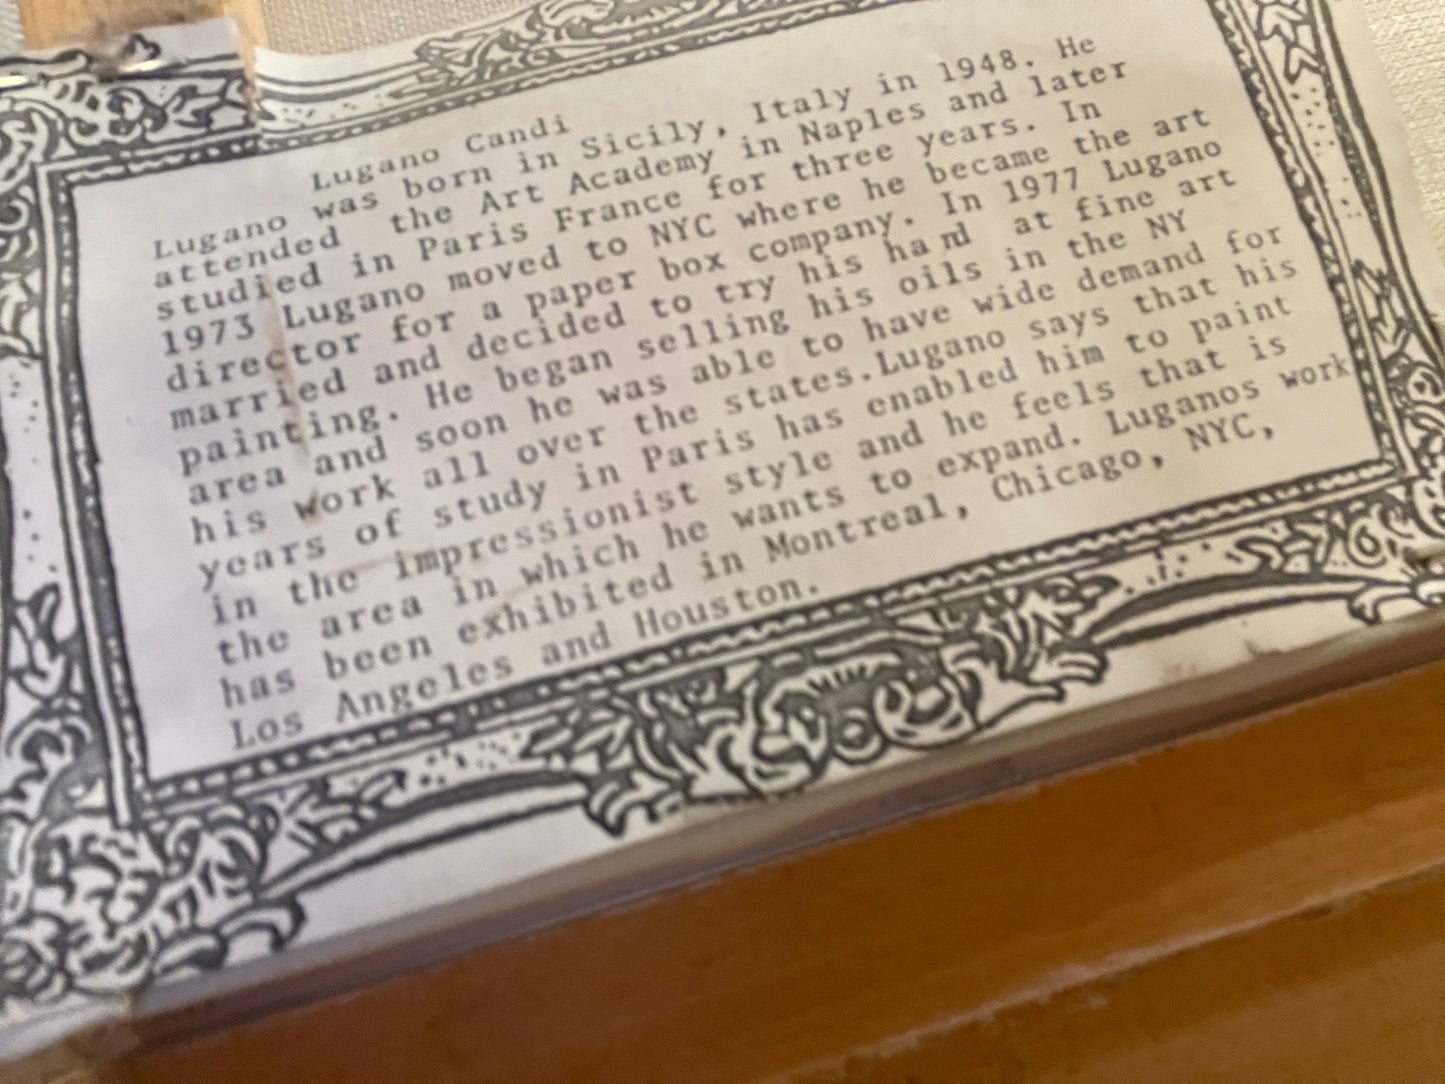 Lugano Candi
Lugano was born in Sicily, Italy in 1948. He
attended the Art Academy in Naples and later
studied in Paris France for three years. In
1973 Lugano moved to NYC where he became the art
director for a paper box company. In 1977 Lugano
married and decided to try his hand at fine art
painting. He began selling his oils in the NY
area and soon he was able to have wide demand for
his work all over the states.Lugano says that his
years of study in Paris has enabled him to paint
in the impressionist style and he feels that is
the area in which he wants to expand. Luganos work
has been exhibited in Montreal, Chicago, NYC,
Los Angeles and Houston.